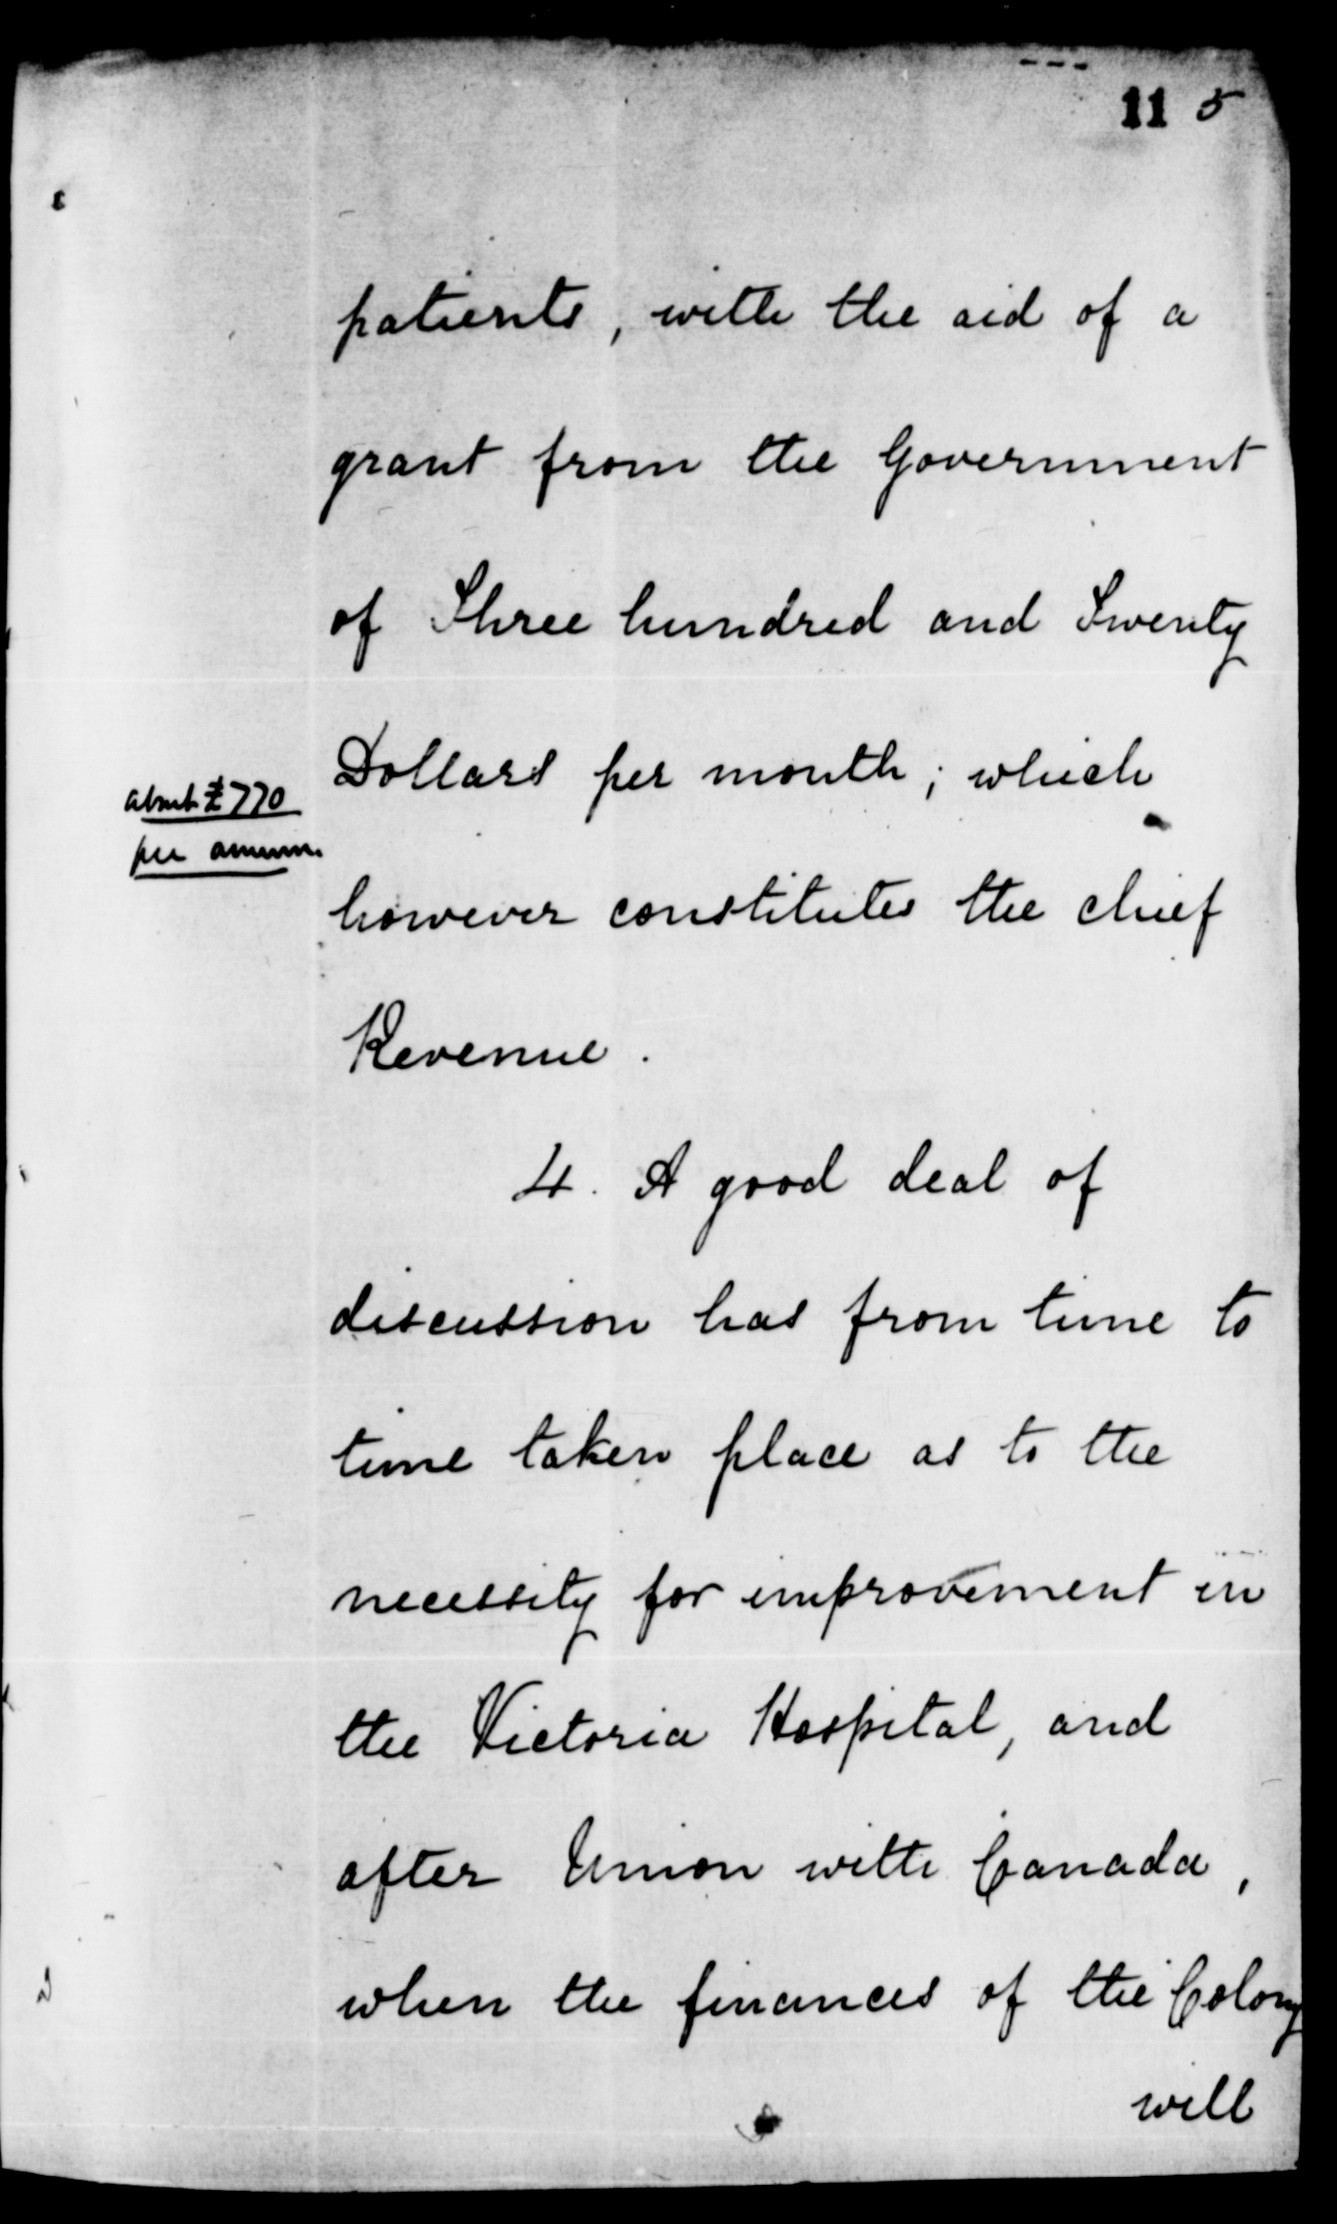 11 5
patients, with the aid of a
grant from the Government
of Three hundred and Twenty
Dollars per month; which
about £770
per annum.
however constitutes the chief
Revenue.
4. A good deal of
discussion has from time to
time taken place as to the
necessity for improvement in
the Victoria Hospital, and
after Union with Canada,
when the finances of the Colony
will